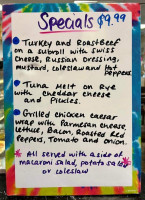 Specials $9.99
Turkey and RoastBeef
on a subroll with swiss
cheese, Russian Dressing,
mustard, coleslaw and Hot
Peppers.
Tuna Melt on Rye
with cheddar cheese
and Pickles.
Grilled chicken caesar
wrap with Parmesan cheese,
lettuce, Bacon, Roasted Red
Peppers, Tomato and onion.
* All served with a side of
macaroni salad, potato salad
or coleslaw